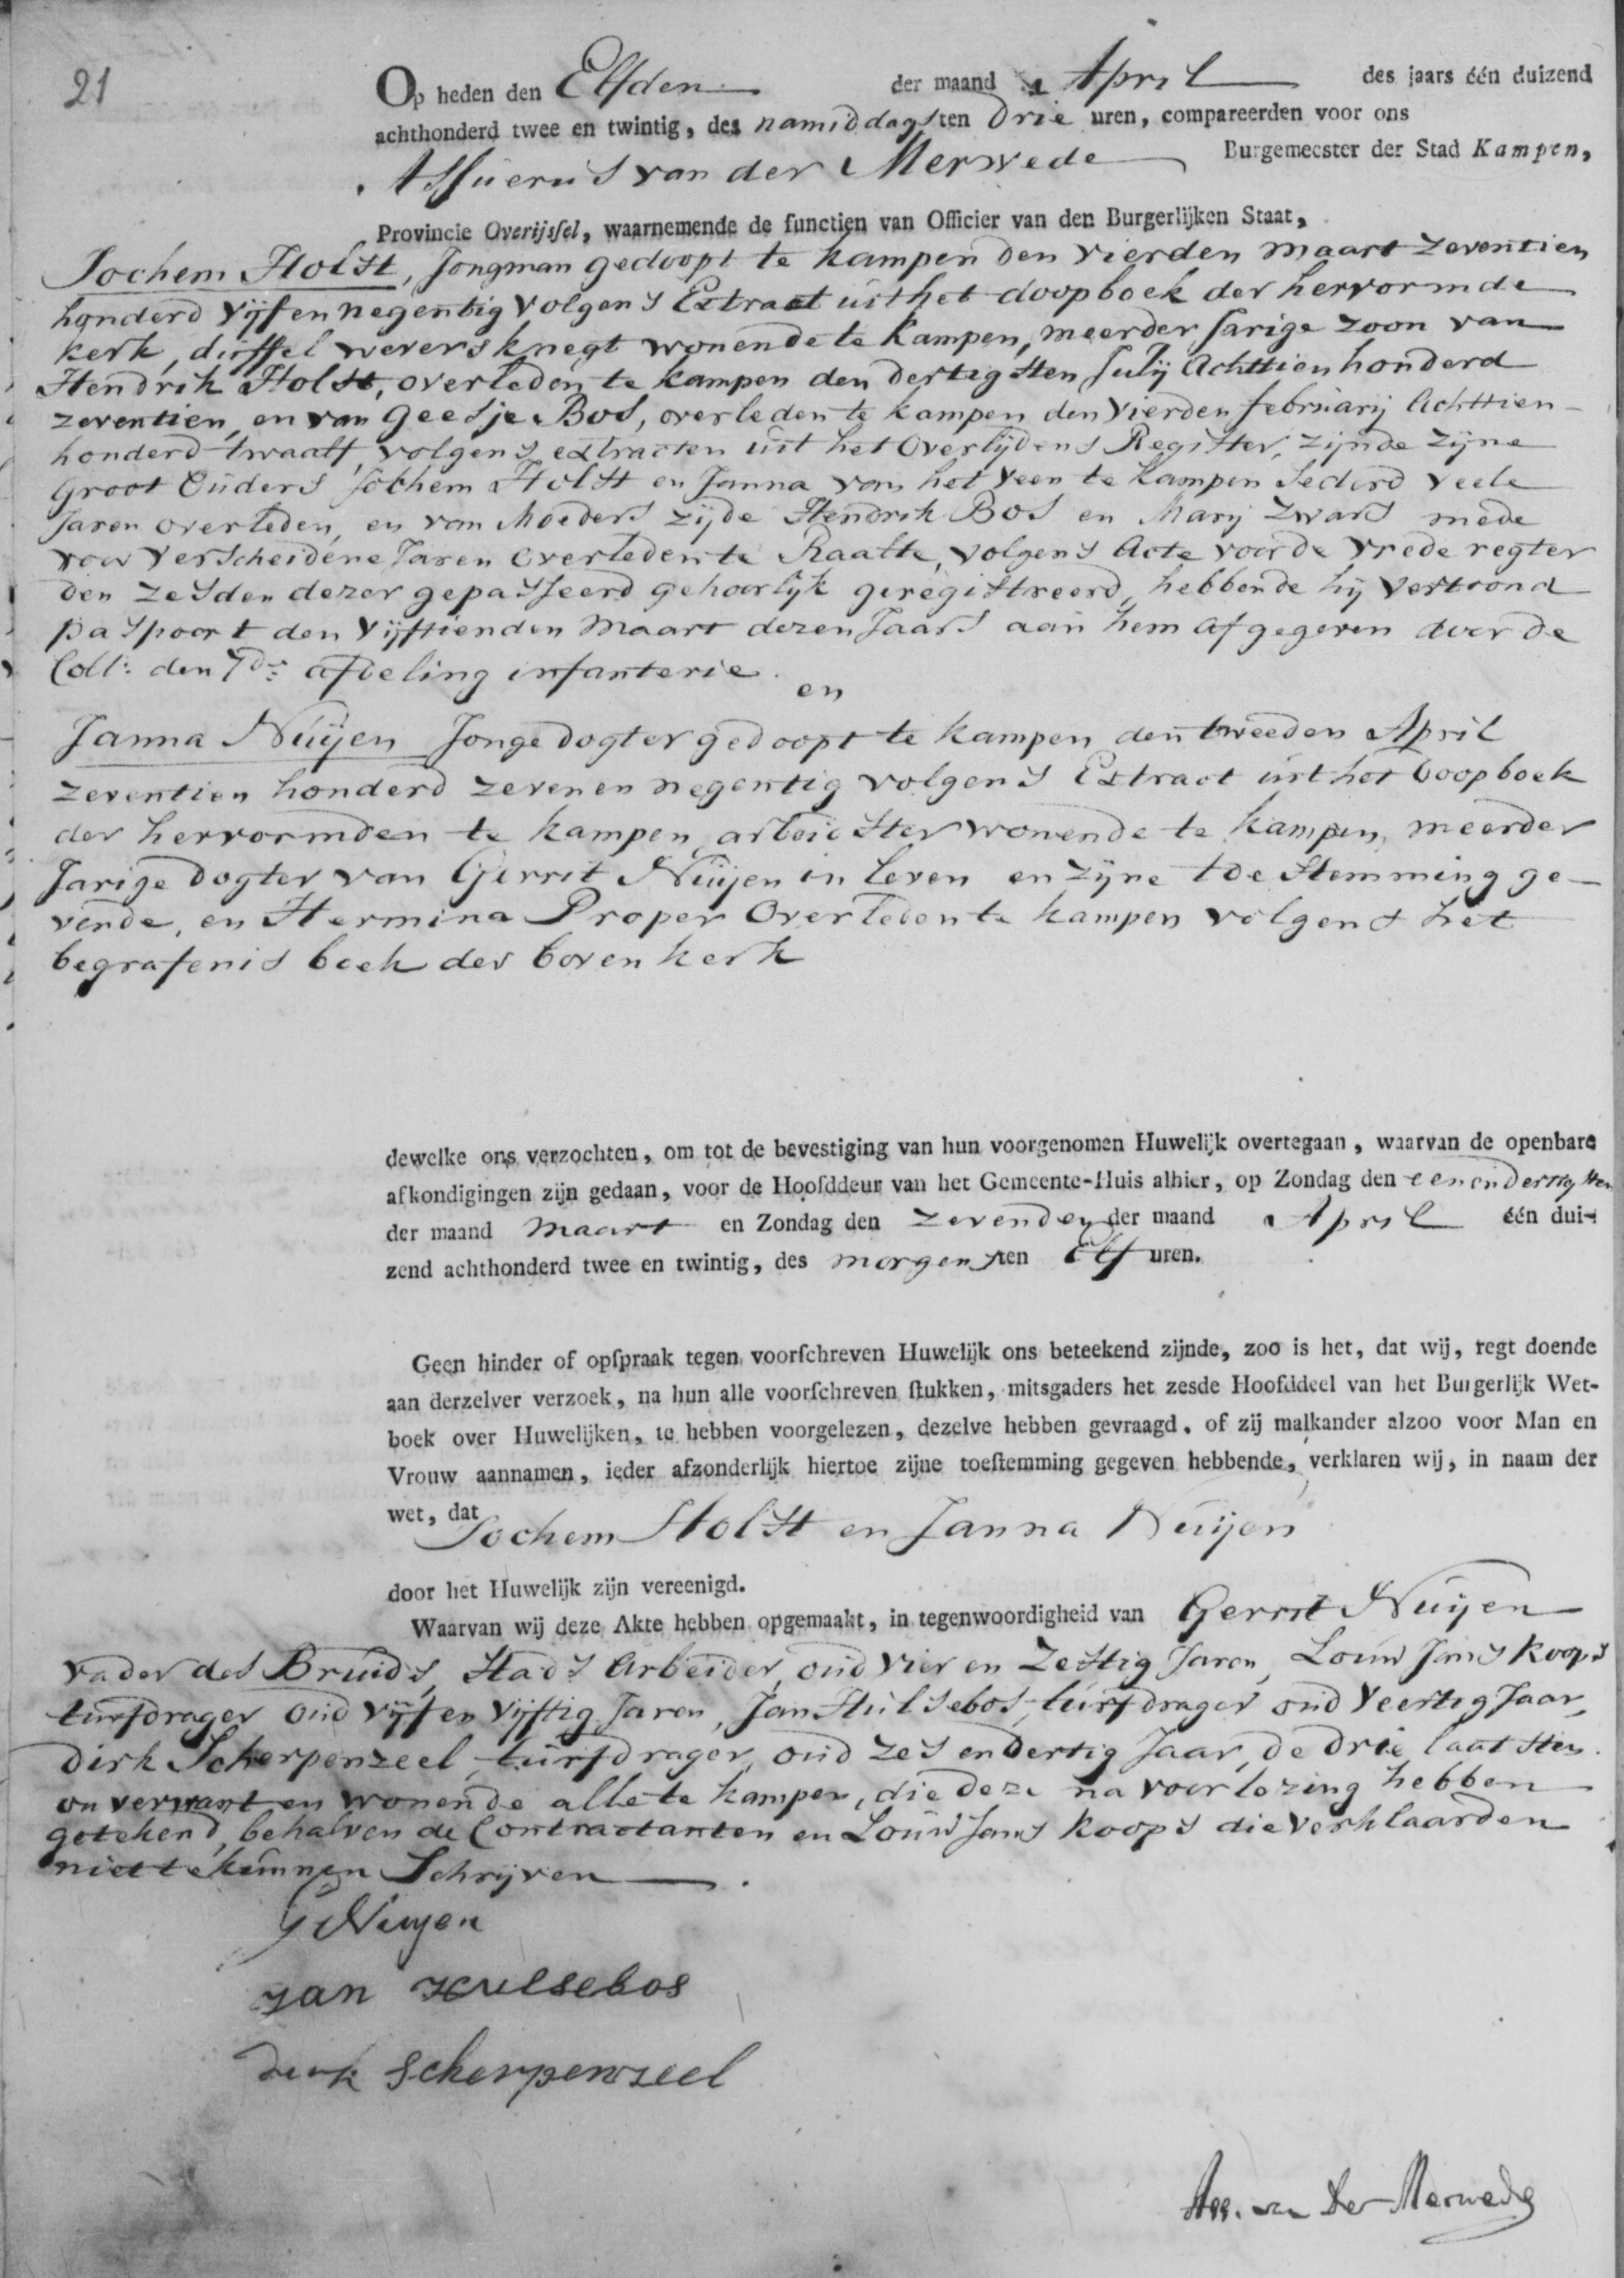 21
Op heden den Elfden der maand April des jaars één duizend
achthonderd twee en twintig, des namiddags ten Drie uren, compareerden voor ons
Assuerus van der Merwede Burgemeester der Stad Kampen,
Provincie Overijssel, waarnemende de functien van Officier van den Burgerlijken Staat,
Jochem Holst, Jongman gedoopt te Kampen den vierden maart zeventien
honderd vijf en negentig volgens Extract uit het doopboek der hervormde
kerk, duffel wevers knegt wonende te Kampen, meerder Jarige zoon van
Hendrik Holst, overleden te Kampen den dertigsten July Achttien honderd
zeventien, en van Geesje Bos, overleden te Kampen den vierden februarij Achttien
honderd twaalf, volgens extracten uit het Overlijdens Register, zijnde zijne
Groot Ouders Jochem Holst en Janna van het Veen te Kampen sederd veele
Jaren overleden, en van Moeders zijde Hendrik Bos en Marij Zwars mede
voor verscheidene Jaren overleden te Raalte, volgens Acte voor de vrede regter
den zesden dezer gepasseerd gehoorlijk geregistreerd, hebbende hij vertoond
paspoort den Vijftienden Maart dezen Jaars aan hem afgegeven door de
Coll: den 7de: afdeling infanterie
en
Janna Nuijen Jonge dogter gedoopt te Kampen den tweeden April
zeventien honderd zeven en negentig volgens Extract uit het Doopboek
der hervormden te Kampen, arbeidster wonende te Kampen, meerder
Jarige dogter van Gerrit Nuijen in leven en zijne toestemming ge-
vende, en Hermina Proper Overleden te Kampen volgens het
begrafenis boek der boven kerk
dewelke ons verzochten, om tot de bevestiging van hun voorgenomen Huwelijk overtegaan, waarvan de openbare
afkondigingen zijn gedaan, voor de Hoofddeur van het Gemeente-Huis alhier, op Zondag den een en dertigsten
der maand maart en Zondag den zevenden der maand April één dui-
zend achthonderd twee en twintig, des morgens ten Elf uren.
Geen hinder of opspraak tegen voorschreven Huwelijk ons beteekend zijnde, zoo is het, dat wij, regt doende
aan derzelver verzoek, na hun alle voorschreven stukken, mitsgaders het zesde Hoofddeel van het Burgerlijk Wet-
boek over Huwelijken, te hebben voorgelezen, dezelve hebben gevraagd, of zij malkander alzoo voor Man en
Vrouw aannamen, ieder afzonderlijk hiertoe zijne toestemming gegeven hebbende, verklaren wij, in naam der
wet, dat Jochem Holst en Janna Nuijen
door het Huwelijk zijn vereenigd.
Waarvan wij deze Akte hebben opgemaakt, in tegenwoordigheid van Gerrit Nuijen
vader des Bruids, Stads Arbeider, oud vier en Zestig Jaren, Louw Jans Koops
turfdrager oud vijf en vijftig Jaren, Jan Hulsebos, turfdrager oud Veertig Jaar,
dirk Scherpenzeel, turfdrager, oud zes en dertig Jaar, de drie laatsten
onverwant en wonende alle te Kampen, die deze na voorlezing hebben
getekend, behalven de Contractanten en Louw Jans Koops die verklaarden
niet te kunnen Schrijven
G Nuyen
Jan Hulsebos
Derk Scherpenzeel
Ass. van Der Merwede